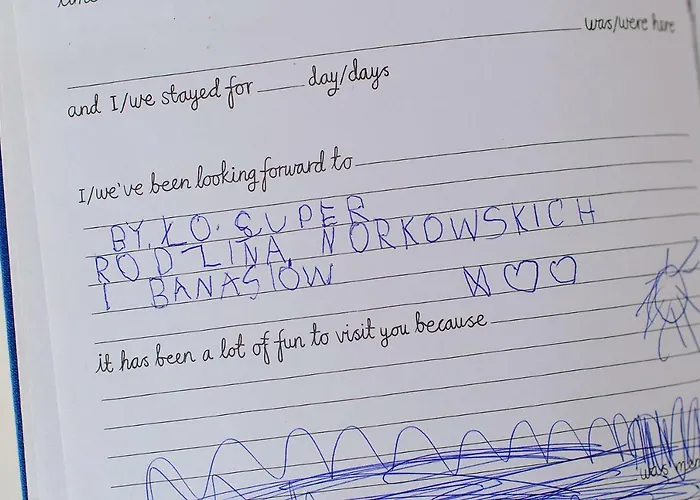 was/were here
and I/we stayed for ____ day/days
I/we've been looking forward to
BY.ŁO. SUPER
RODZINA NORKOWSKICH
I BANASIÓW
it has been a lot of fun to visit you because